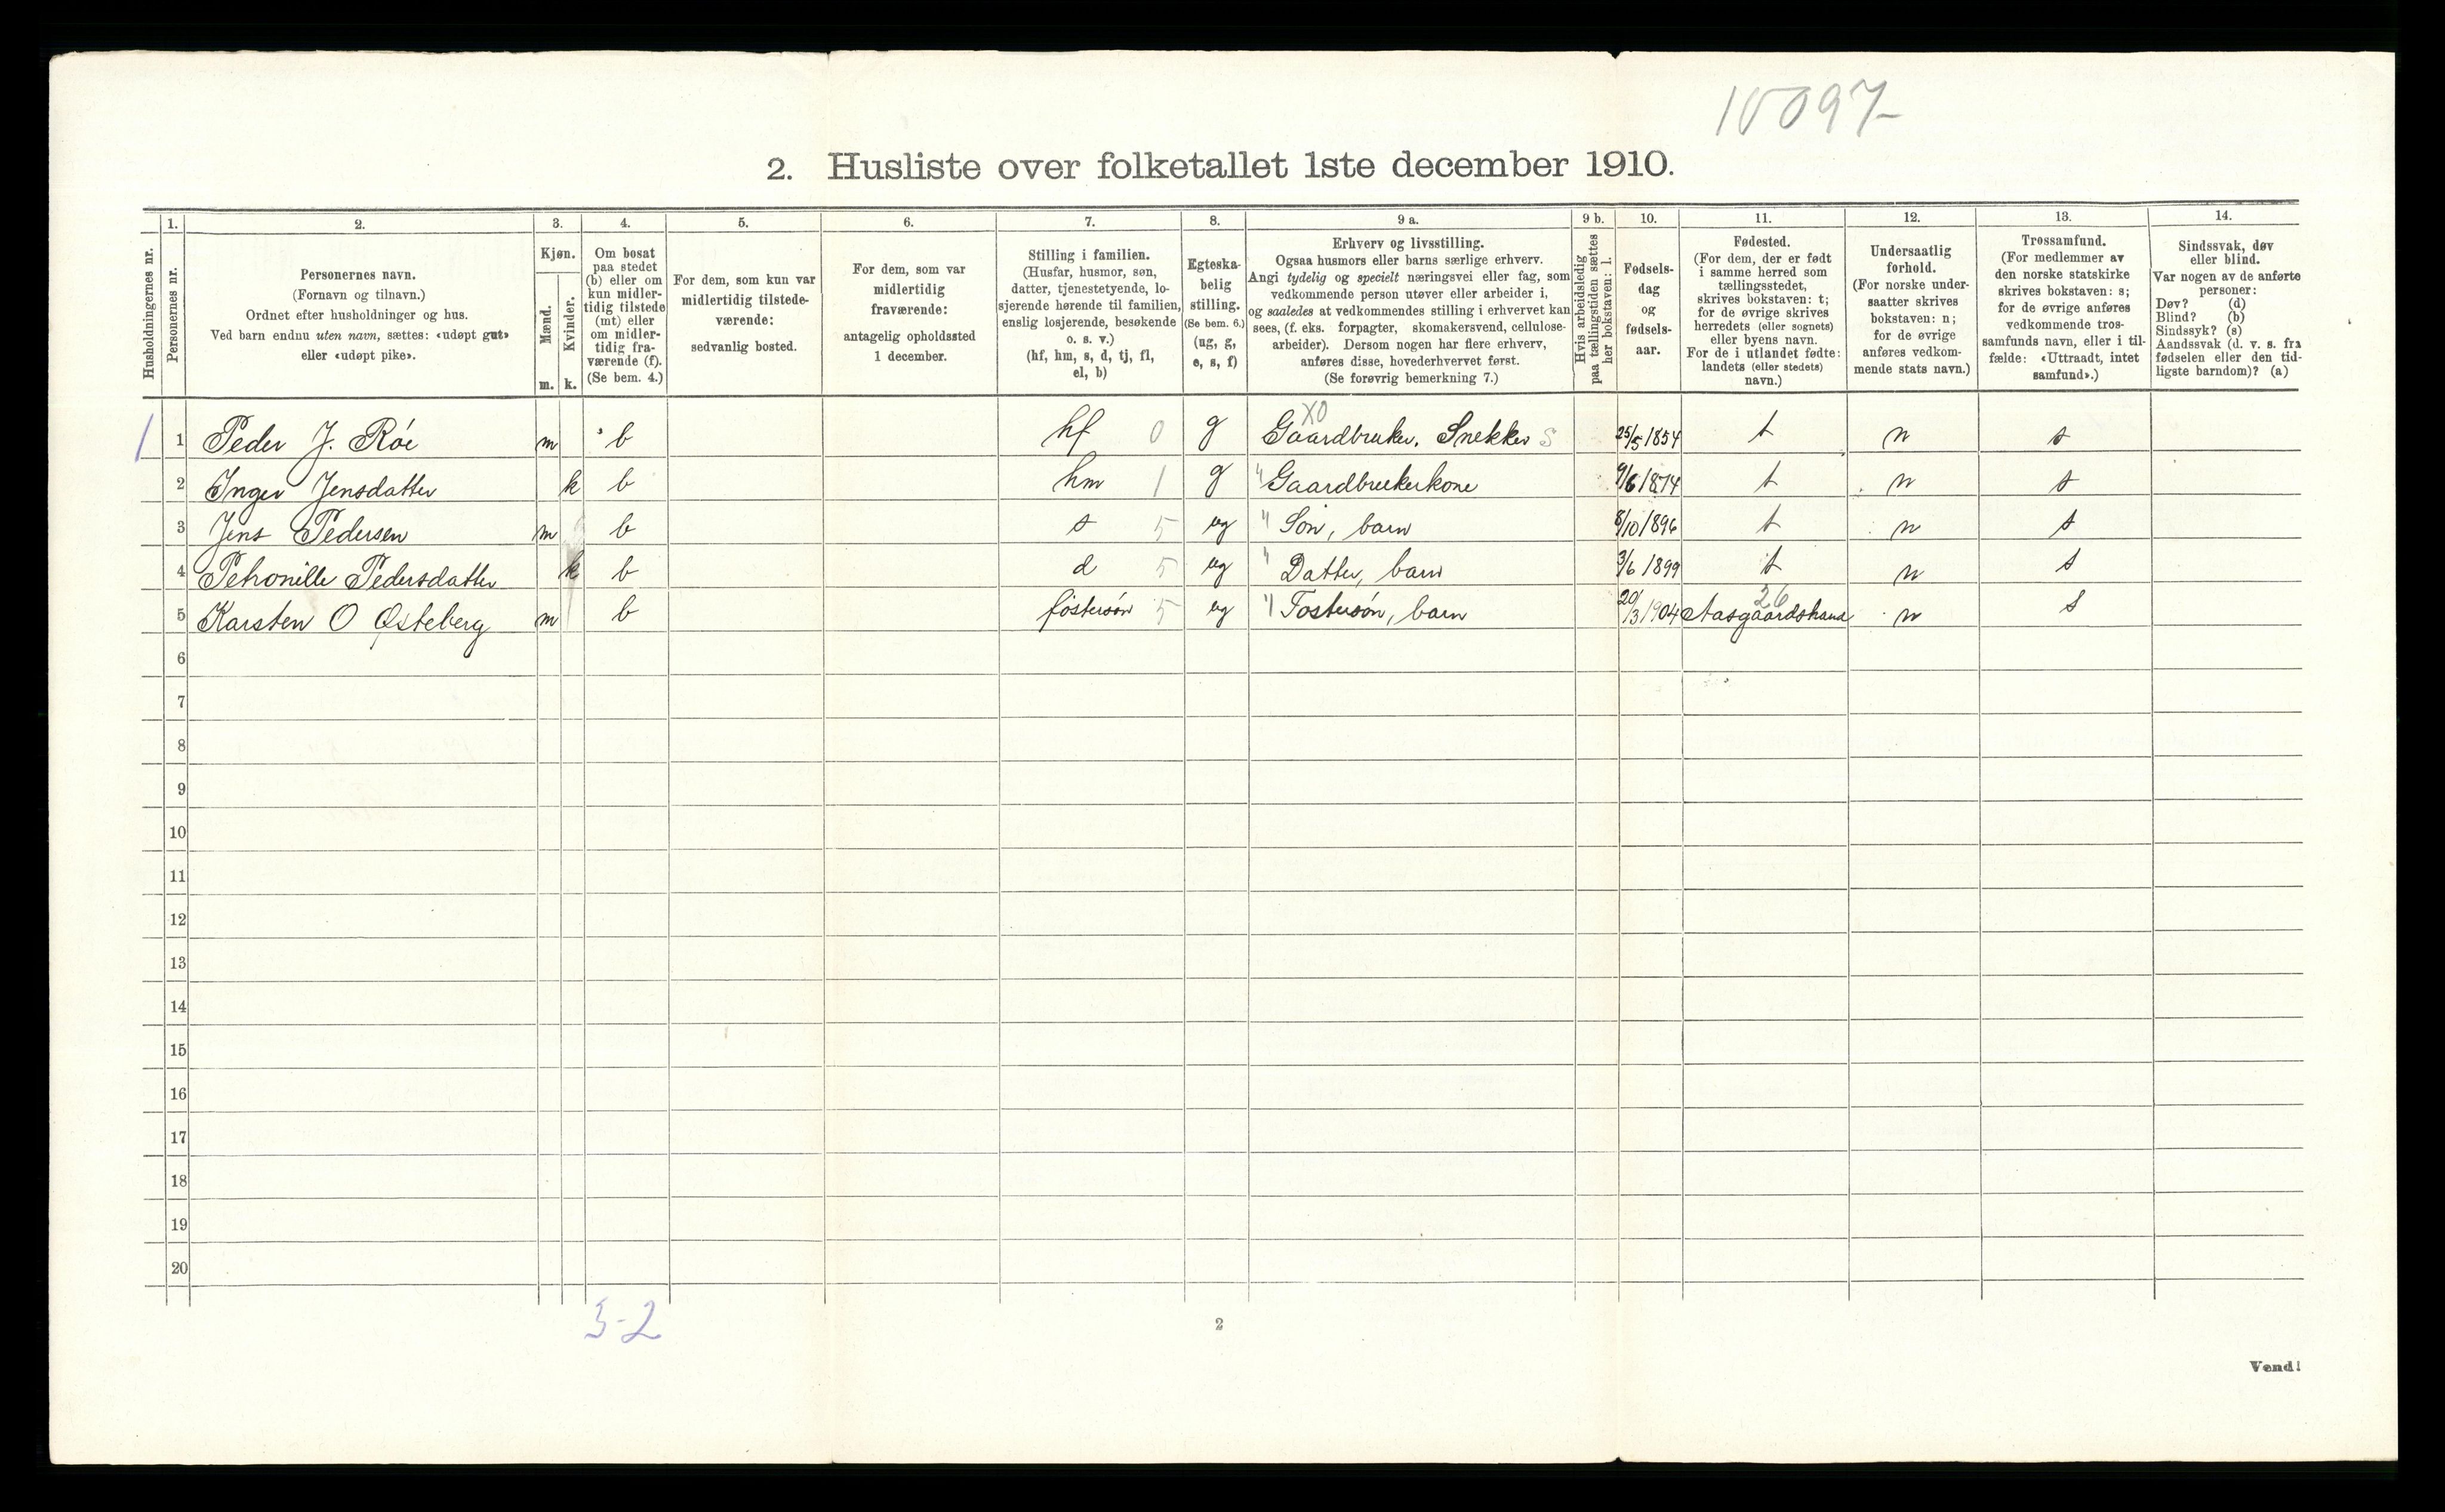 10097
2. Husliste over folketallet 1ste december 1910.
Husholdningernes nr.
1.
Personernes nr.
2.
Personernes navn.
(Fornavn og tilnavn.)
Ordnet efter husholdninger og hus.
Ved barn endnu uten navn, sættes: «udøpt gut»
eller «udøpt pike».
3.
Kjøn.
Mænd.
m.
Kvinder.
k.
4.
Om bosat
paa stedet
(b) eller om
kun midler-
tidig tilstede
(mt) eller
om midler-
tidig fra-
værende (f).
(Se bem. 4.)
5.
For dem, som kun var
midlertidig tilstede-
værende:
sedvanlig bosted.
6.
For dem, som var
midlertidig
fraværende:
antagelig opholdssted
1 december.
7.
Stilling i familien.
(Husfar, husmor, søn,
datter, tjenestetyende, lo-
sjerende hørende til familien,
enslig losjerende, besøkende
o. s. v.)
(hf, hm, s, d, tj, fl,
el, b)
8.
Egteska-
belig
stilling.
(Se bem. 6.)
(ug, g,
e, s, f)
9 a.
Erhverv og livsstilling.
Ogsaa husmors eller barns særlige erhverv.
Angi tydelig og specielt næringsvei eller fag, som
vedkommende person utøver eller arbeider i,
og saaledes at vedkommendes stilling i erhvervet kan
sees, (f. eks. forpagter, skomakersvend, cellulose-
arbeider). Dersom nogen har flere erhverv,
anføres disse, hovederhvervet først.
(Se forøvrig bemerkning 7.)
9 b.
Hvis arbeidsledig
paa tællingstiden sættes
her bokstaven: l.
10.
Fødsels-
dag
og
fødsels-
aar.
11.
Fødested.
(For dem, der er født
i samme herred som
tællingsstedet,
skrives bokstaven: t;
for de øvrige skrives
herredets (eller sognets)
eller byens navn.
For de i utlandet fødte:
landets (eller stedets)
navn.)
12.
Undersaatlig
forhold.
(For norske under-
saatter skrives
bokstaven: n;
for de øvrige
anføres vedkom-
mende stats navn.)
13.
Trossamfund.
(For medlemmer av
den norske statskirke
skrives bokstaven: s;
for de øvrige anføres
vedkommende tros-
samfunds navn, eller i til-
fælde: «Uttraadt, intet
samfund».)
14.
Sindssvak, døv
eller blind.
Var nogen av de anførte
personer:
Døv? (d)
Blind? (b)
Sindssyk? (s)
Aandssvak (d. v. s. fra
fødselen eller den tid-
ligste barndom)? (a)
XO
1 1 Peder J. Røe m b hf 0 g Gaardbruker. Snekker S 25/5 1854 t n s
2 Inger Jensdatter k b hm 1 g " Gaardbrukerkone 9/6 1874 t n s
3 Jens Pedersen m b s 5 ug " Søn, barn 8/10 1896 t n s
4 Petronille Pedersdatter k b d 5 ug " Datter, barn 3/6 1899 t n s
26
5 Karsten O Østeberg m b fostersøn 5 ug " Fostersøn, barn 20/3 1904 Aasgaardstrand n s
6
7
8
9
10
11
12
13
14
15
16
17
18
19
20
3-2
2
Vend!